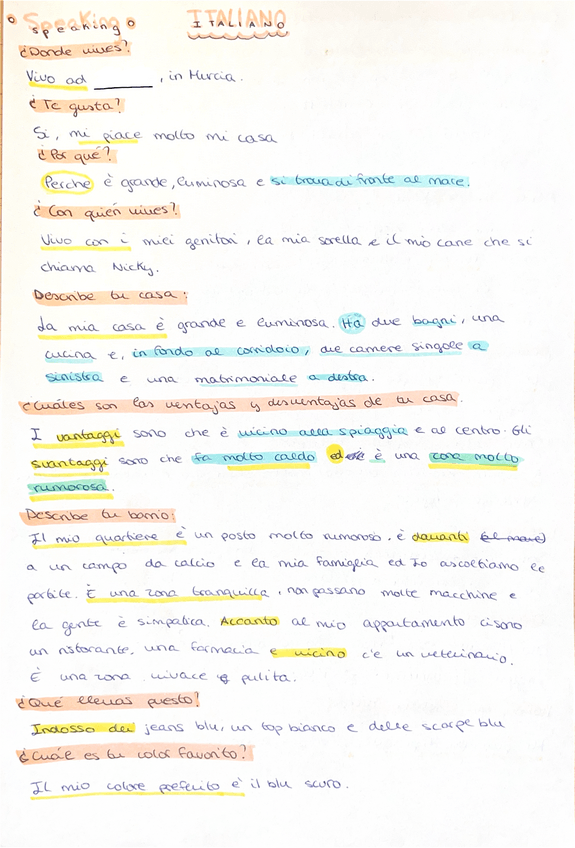 Speaking ITALIANO
speaking ITALIANO
¿Donde vives?
Vivo ad ______, in Murcia.
¿Te gusta?
Si, mi piace molto mi casa
¿Por qué?
Perche è grande, luminosa e si trova di fronte al mare.
¿Con quién vives?
Vivo con i miei genitori, la mia sorella e il mio cane che si
chiama Nicky.
Describe tu casa:
La mia casa è grande e luminosa. Ha due bagni, una
cucina e, in fondo al corridoio, due camere singole a
sinistra e una matrimoniale a destra.
¿Cuáles son las ventajas y desventajas de tu casa.
I vantaggi sono che è vicino alla spiaggia e al centro. Gli
svantaggi sono che fa molto caldo ed è una cosa molto
rumorosa.
Describe tu barrio:
Il mio quartiere è un posto molto rumoroso. è davanti (al mare)
a un campo da calcio e la mia famiglia ed Io ascoltiamo le
partite. È una zona tranquilla, non passano molte macchine e
la gente è simpatica. Accanto al mio appartamento cisono
un ristorante, una farmacia e vicino c'è un veterinario.
È una zona vivace e pulita.
¿Qué llevas puesto?
Indosso dei jeans blu, un top bianco e delle scarpe blu
¿Cuál es tu color favorito?
Il mio colore preferito è il blu scuro.